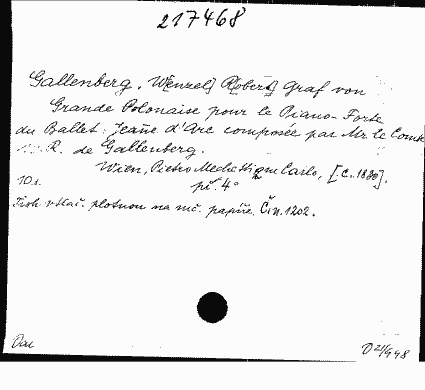 217468
Gallenberg, W[enzel] R[obert] Graf von
Grande Polonaise pour le Piano-Forte
du Ballet: Jeañe d'Arc composée par Mr. le Comte
R. de Gallenberg.
Wien, Pietro Mechetti qu Carlo, [c. 1830].
10 s. 4°
Tisk v tlač. plotnou na nič. papíře. Č. n. 1202.
Dar